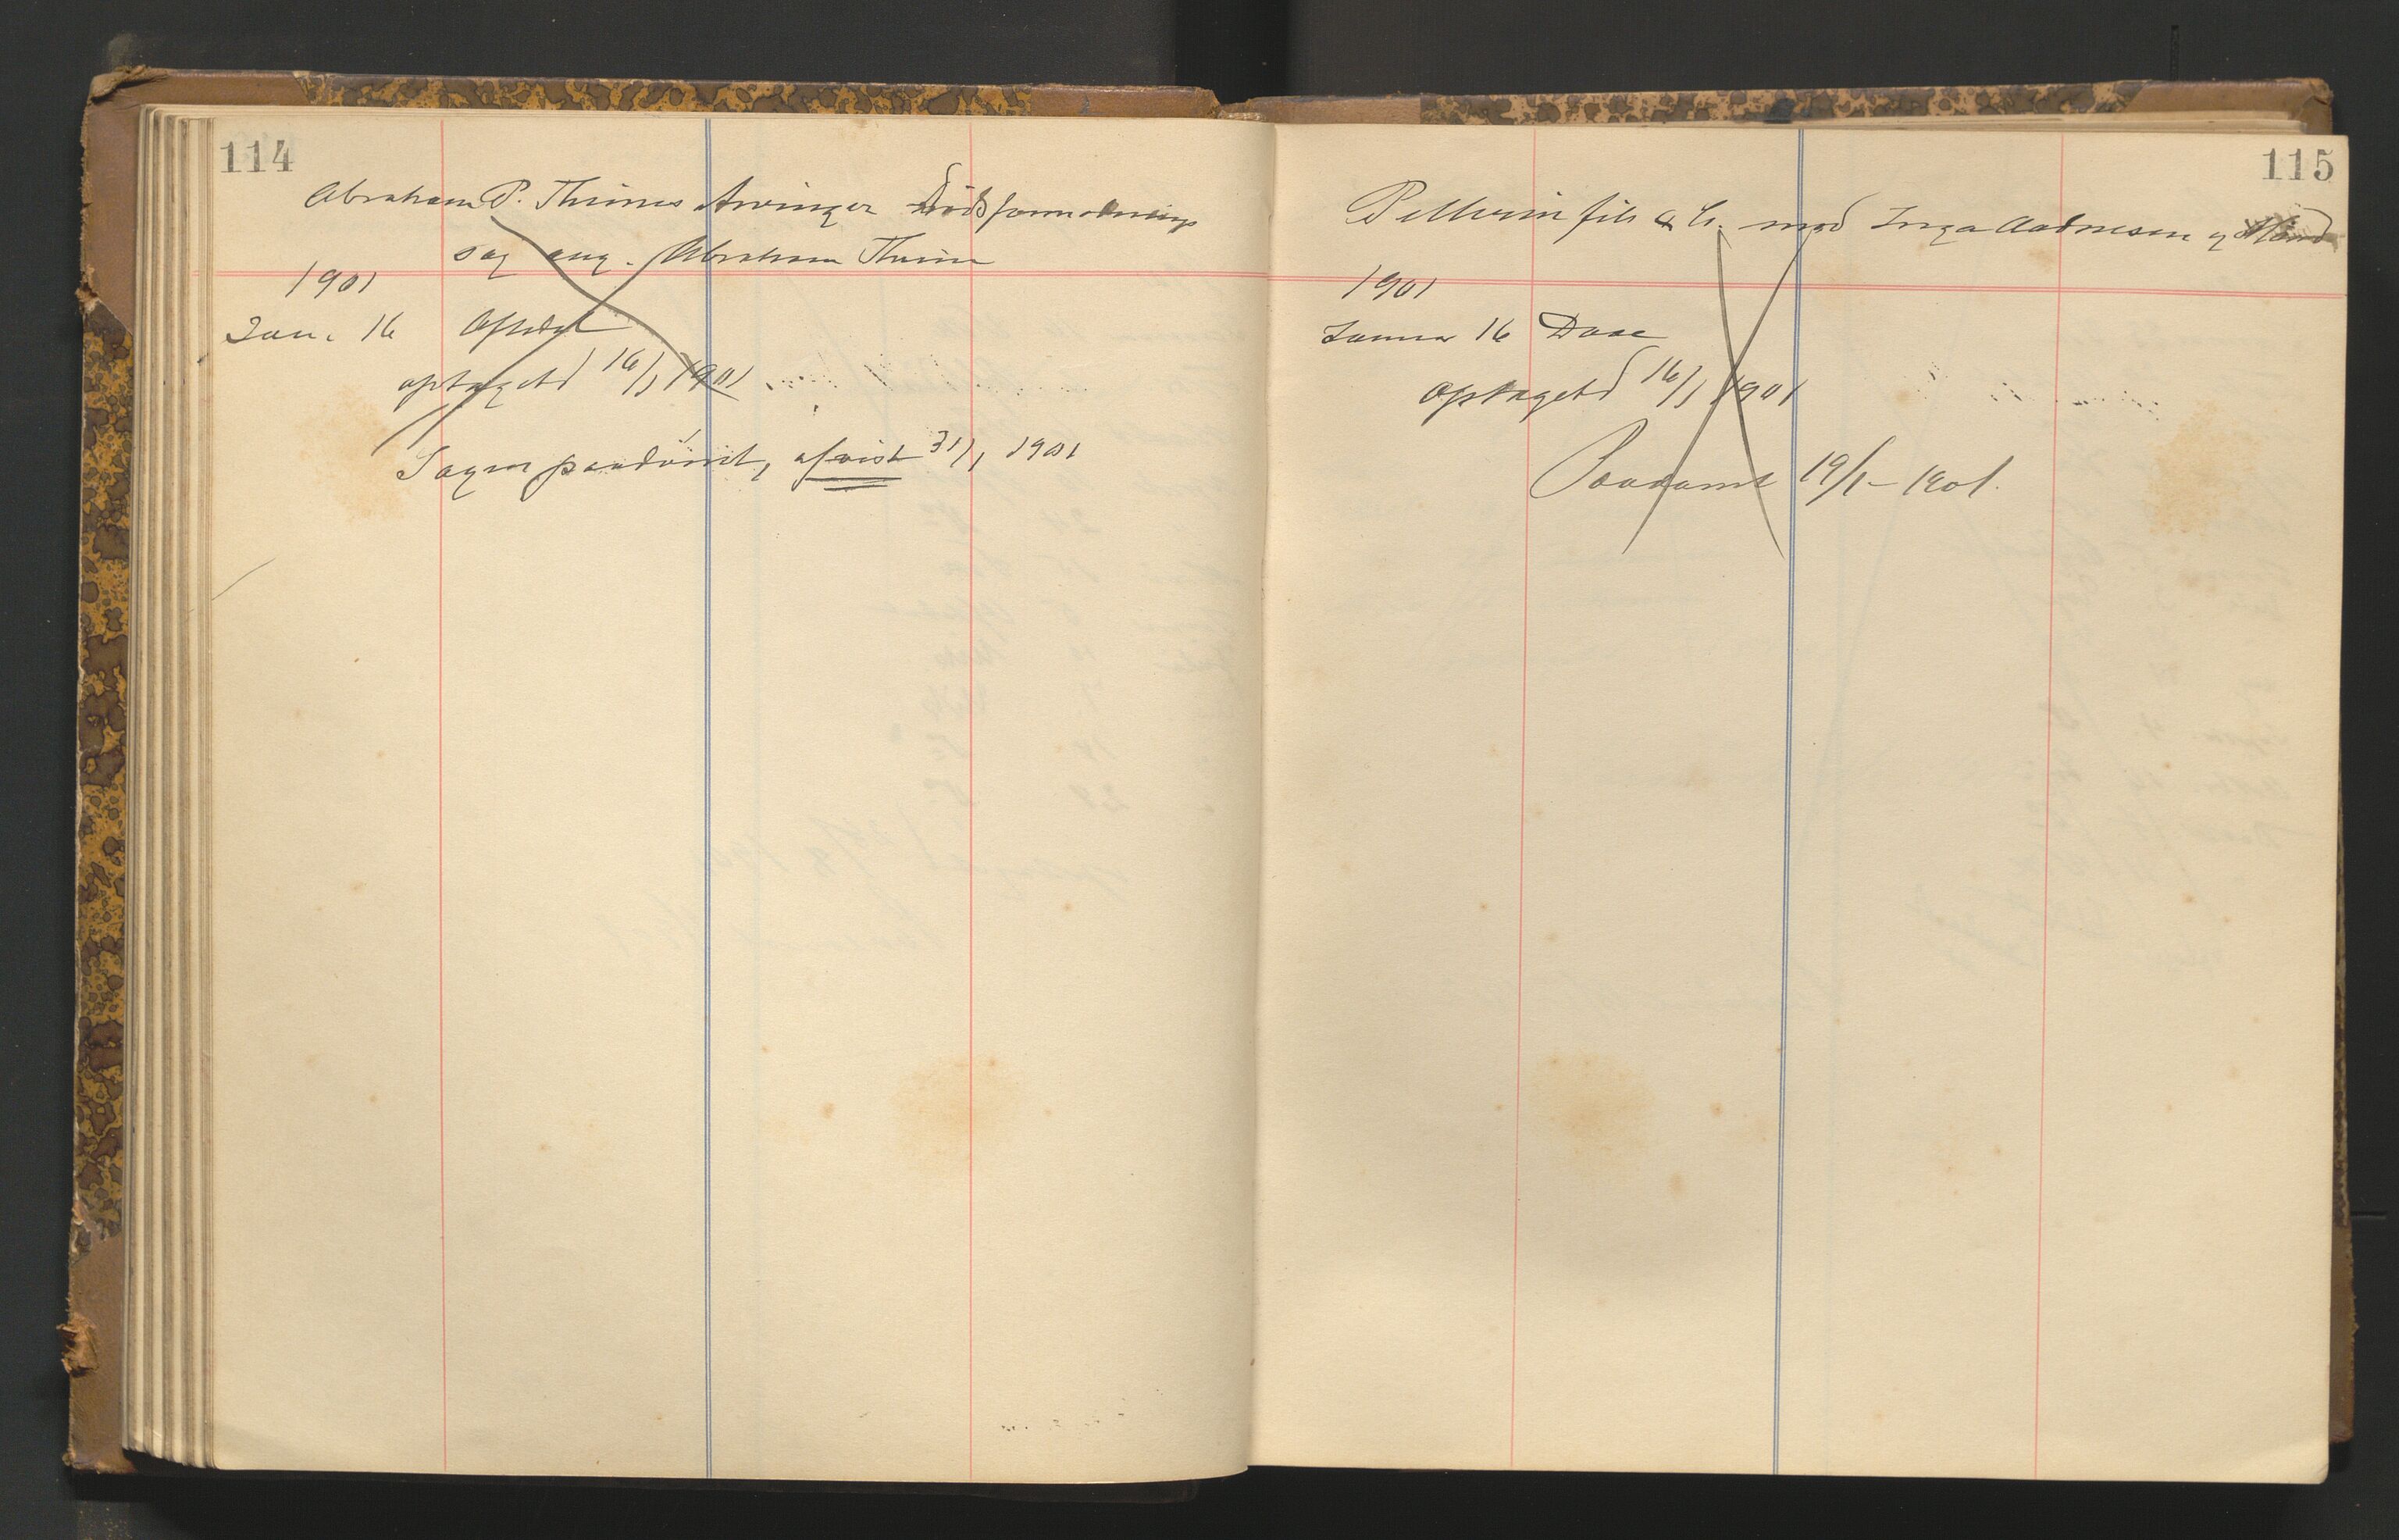 114
Abraham P. Thimes Arvinger Dödsformodnings
sag ang. Abraham Thime
1901
Jan. 16
optaget 16/1 1901
Sagen paadömt, afvist 31/1 1901
115
Pellerin fils & Co. mod Inga Aadnesen og Mand
1901
Januar 16
optaget 16/1 1901
Paadömt 19/1 - 1901.